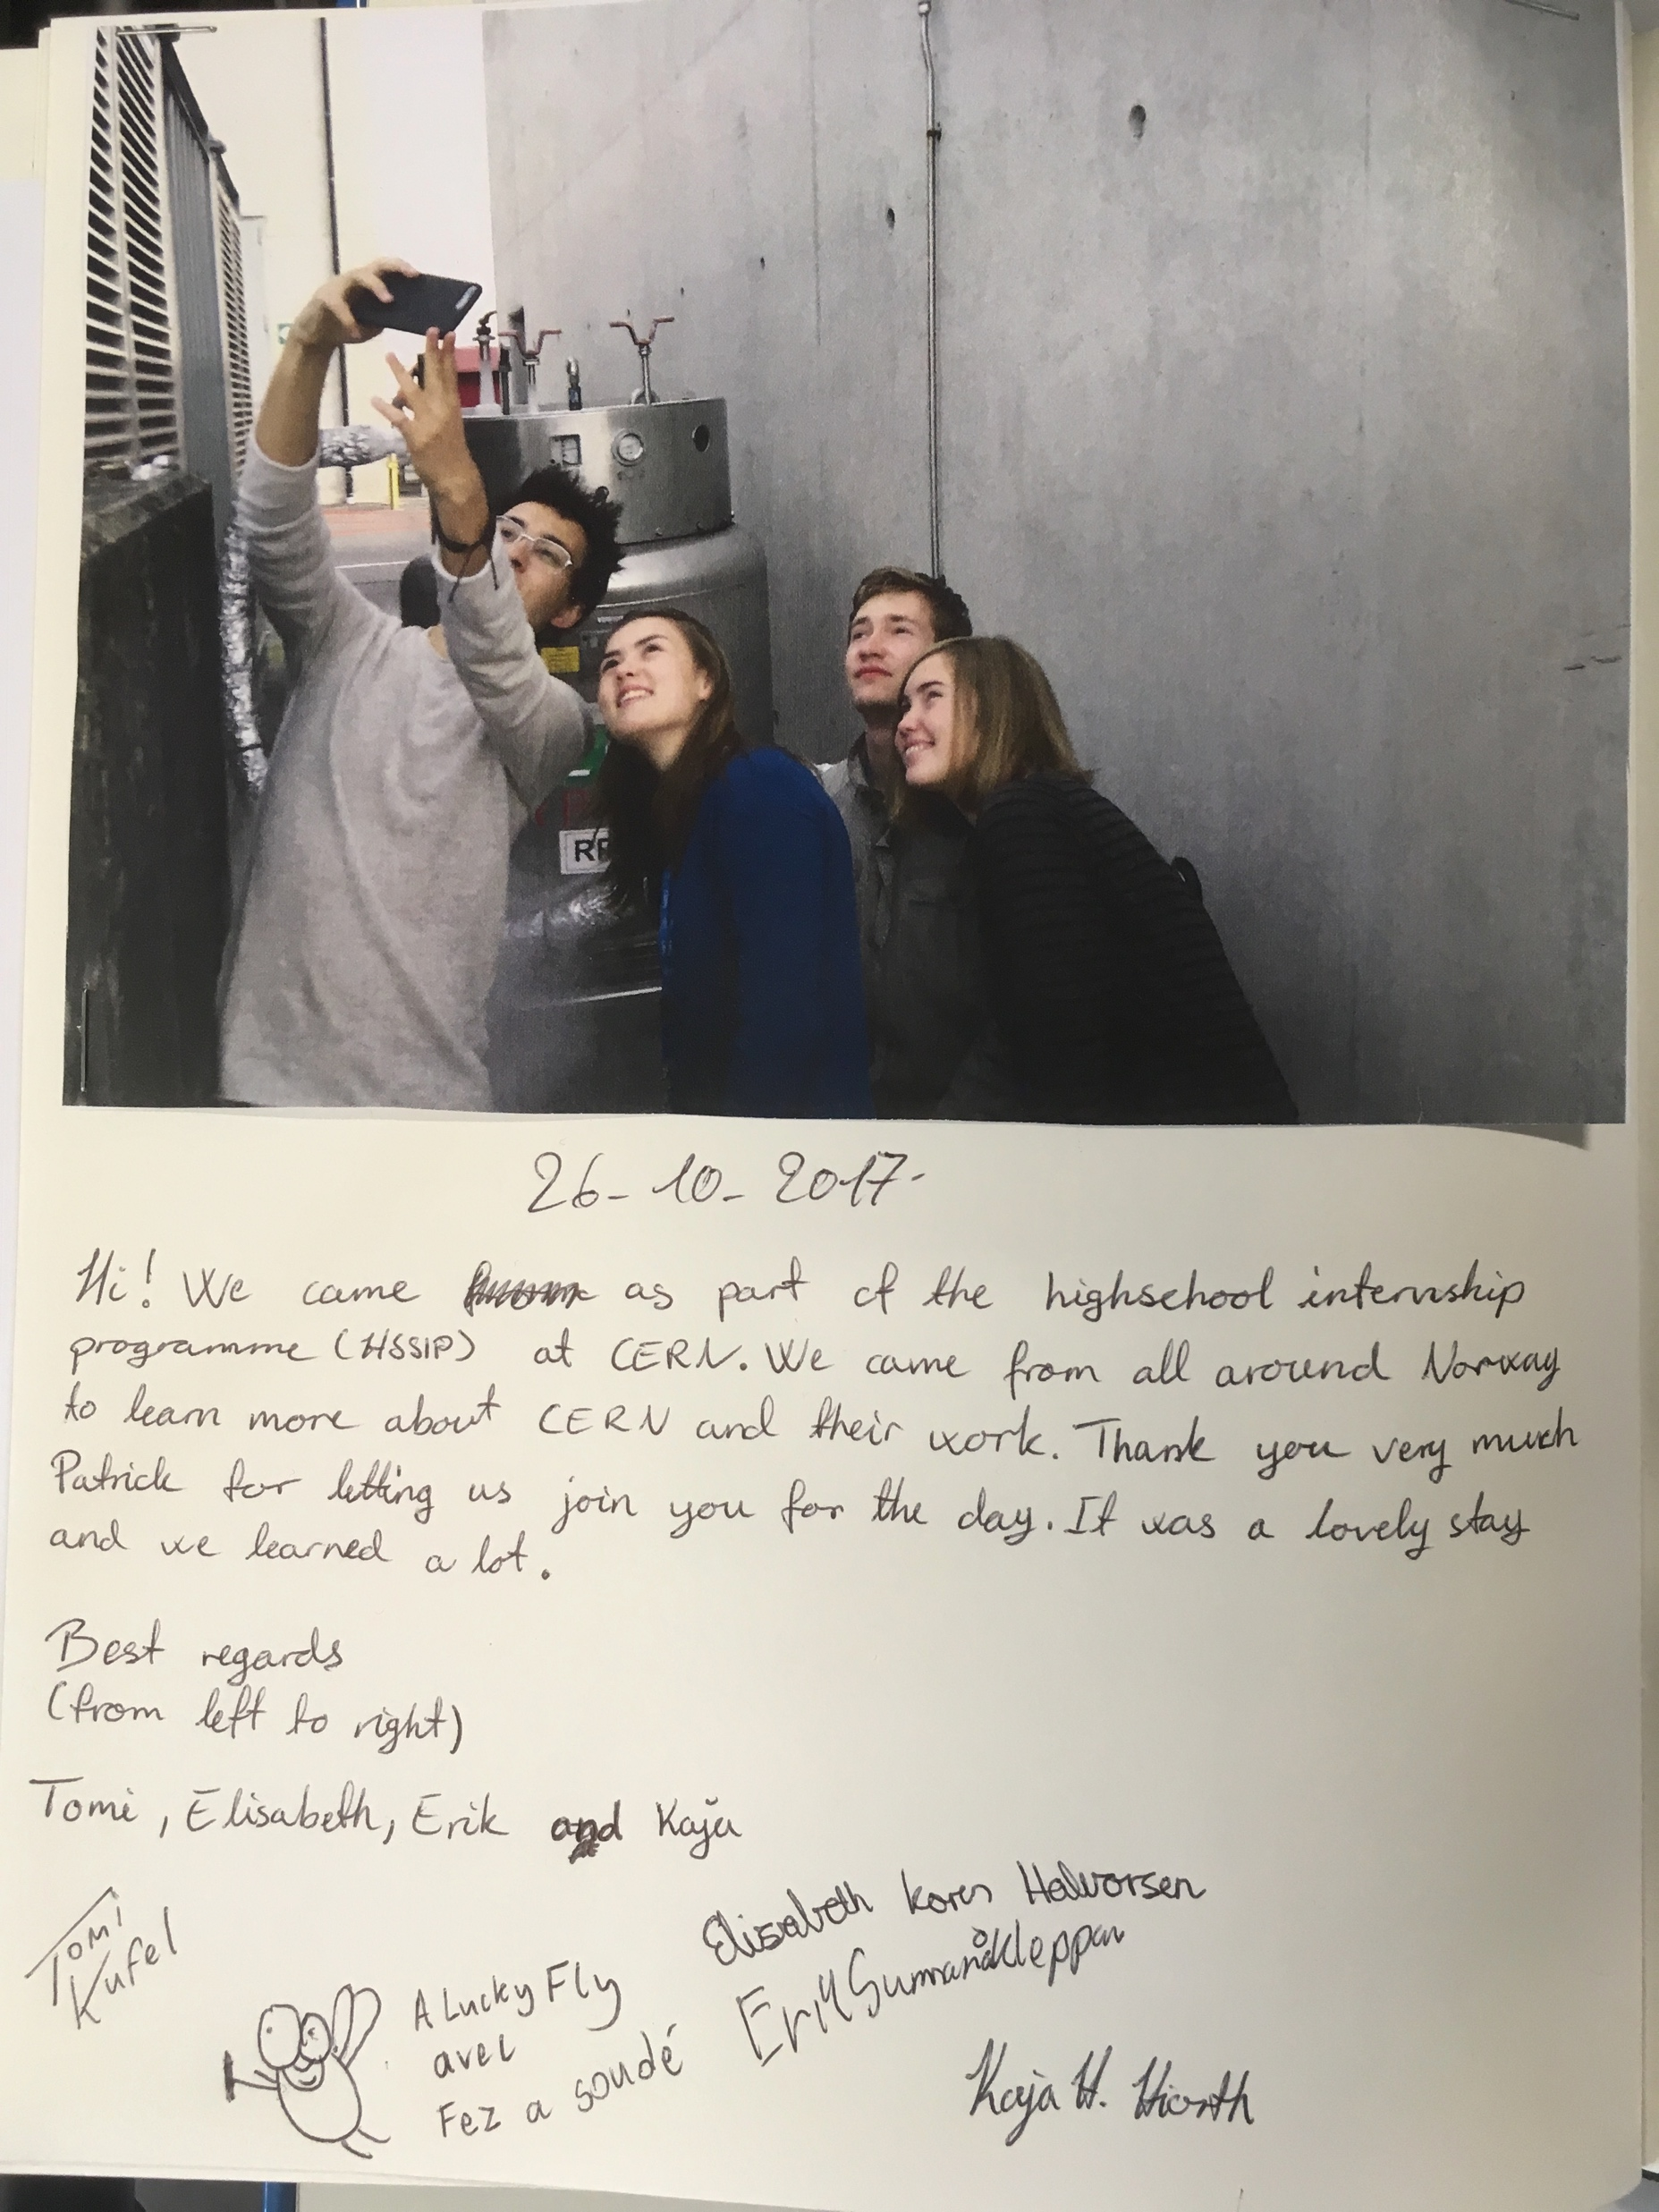 RF
26-10-2017-
Hi! We came as part of the highschool internship
programme (HSSIP) at CERN. We came from all around Norway
to learn more about CERN and their work. Thank you very much
Patrick for letting us join you for the day. It was a lovely stay
and we learned a lot.
Best regards
(from left to right)
Tomi, Elisabeth, Erik and Kaja
Tomi
Kufel
A Lucky Fly
avec
Fez a soudé
Elisabeth Halvorsen
Kaja H. Hiorth